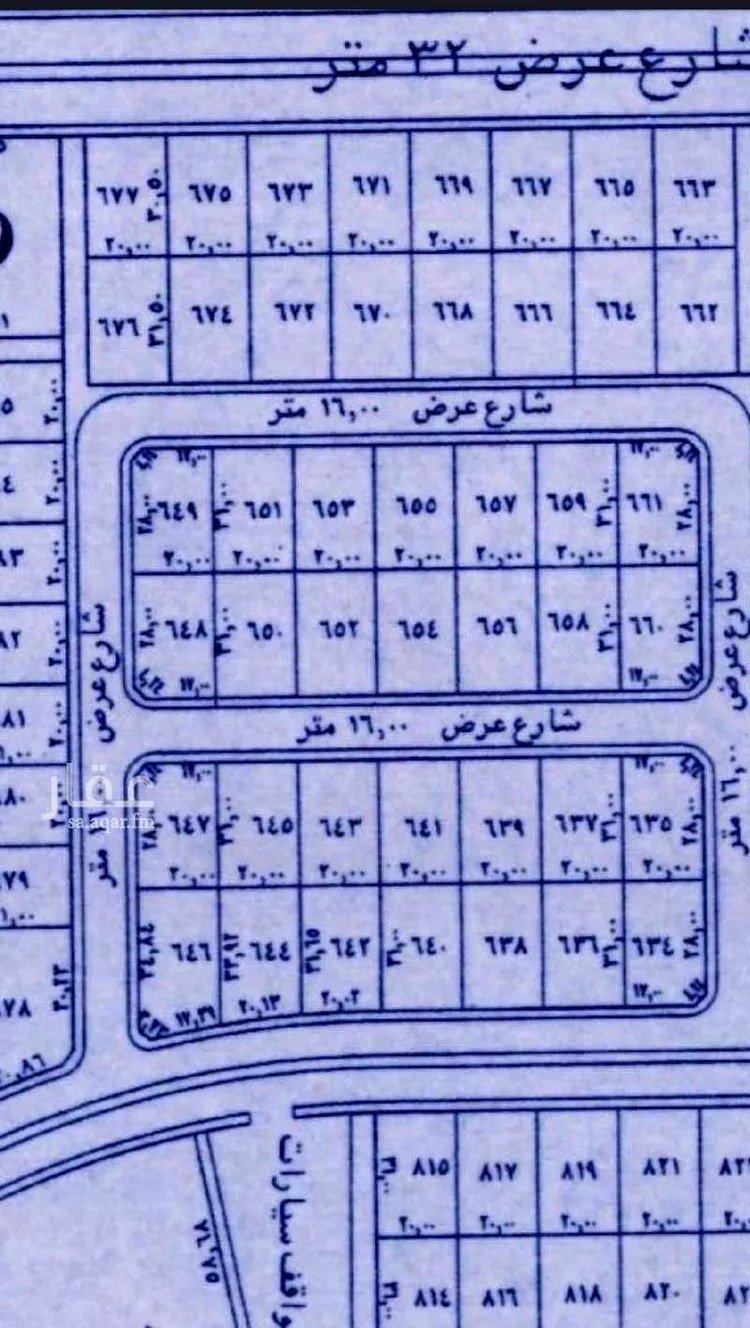 شارع عرض ٣٢ متر
٦٧٧ ٦٧٥ ٦٧٣ ٦٧١ ٦٦٩ ٦٦٧ ٦٦٥ ٦٦٣
٢٠,٠٠ ٢٠,٠٠ ٢٠,٠٠ ٢٠,٠٠ ٢٠,٠٠ ٢٠,٠٠ ٢٠,٠٠ ٢٠,٠٠
٦٧٦ ٣١,٥٠ ٦٧٤ ٦٧٢ ٦٧٠ ٦٦٨ ٦٦٦ ٦٦٤ ٦٦٢
شارع عرض ١٦,٠٠ متر
١٧,٠٠ ١٧,٠٠
٢٨,٠٠ ٦٤٩ ٣١,٠٠ ٦٥١ ٦٥٣ ٦٥٥ ٦٥٧ ٦٥٩ ٣١,٠٠ ٦٦١ ٢٨,٠٠
٢٠,٠٠ ٢٠,٠٠ ٢٠,٠٠ ٢٠,٠٠ ٢٠,٠٠ ٢٠,٠٠ ٢٠,٠٠
٢٨,٠٠ ٦٤٨ ٣١,٠٠ ٦٥٠ ٦٥٢ ٦٥٤ ٦٥٦ ٦٥٨ ٣١,٠٠ ٦٦٠ ٢٨,٠٠
١٧,٠٠ ١٧,٠٠
شارع عرض ١٦,٠٠ متر
شارع عرض
متر
شارع عرض ١٦,٠٠ متر
١٧,٠٠ ١٧,٠٠
٦٤٧ ٣١,٠٠ ٦٤٥ ٦٤٣ ٦٤١ ٦٣٩ ٦٣٧ ٣١,٠٠ ٦٣٥ ٢٨,٠٠
٢٠,٠٠ ٢٠,٠٠ ٢٠,٠٠ ٢٠,٠٠ ٢٠,٠٠ ٢٠,٠٠ ٢٠,٠٠
٣٤,٨٤ ٦٤٦ ٣٣,٩٢ ٦٤٤ ٣١,٦٥ ٦٤٢ ٣١,٠٠ ٦٤٠ ٦٣٨ ٦٣٦ ٣١,٠٠ ٦٣٤ ٢٨,٠٠
١٧,٢٩ ٢٠,١٣ ٢٠,٠٢ ١٧,٠٠
عقار
sa.aqar.fm
٢٠,٠٠
٢٠,٠٠
٢٠,٠٠
٢٠,٠٠
٢٠,٠٠
٢٠,٢٣
مواقف سيارات
٧٦,٧٥
٣١,٠٠ ٨١٥ ٨١٧ ٨١٩ ٨٢١
٢٠,٠٠ ٢٠,٠٠ ٢٠,٠٠ ٢٠,٠٠
٣١,٠٠ ٨١٤ ٨١٦ ٨١٨ ٨٢٠